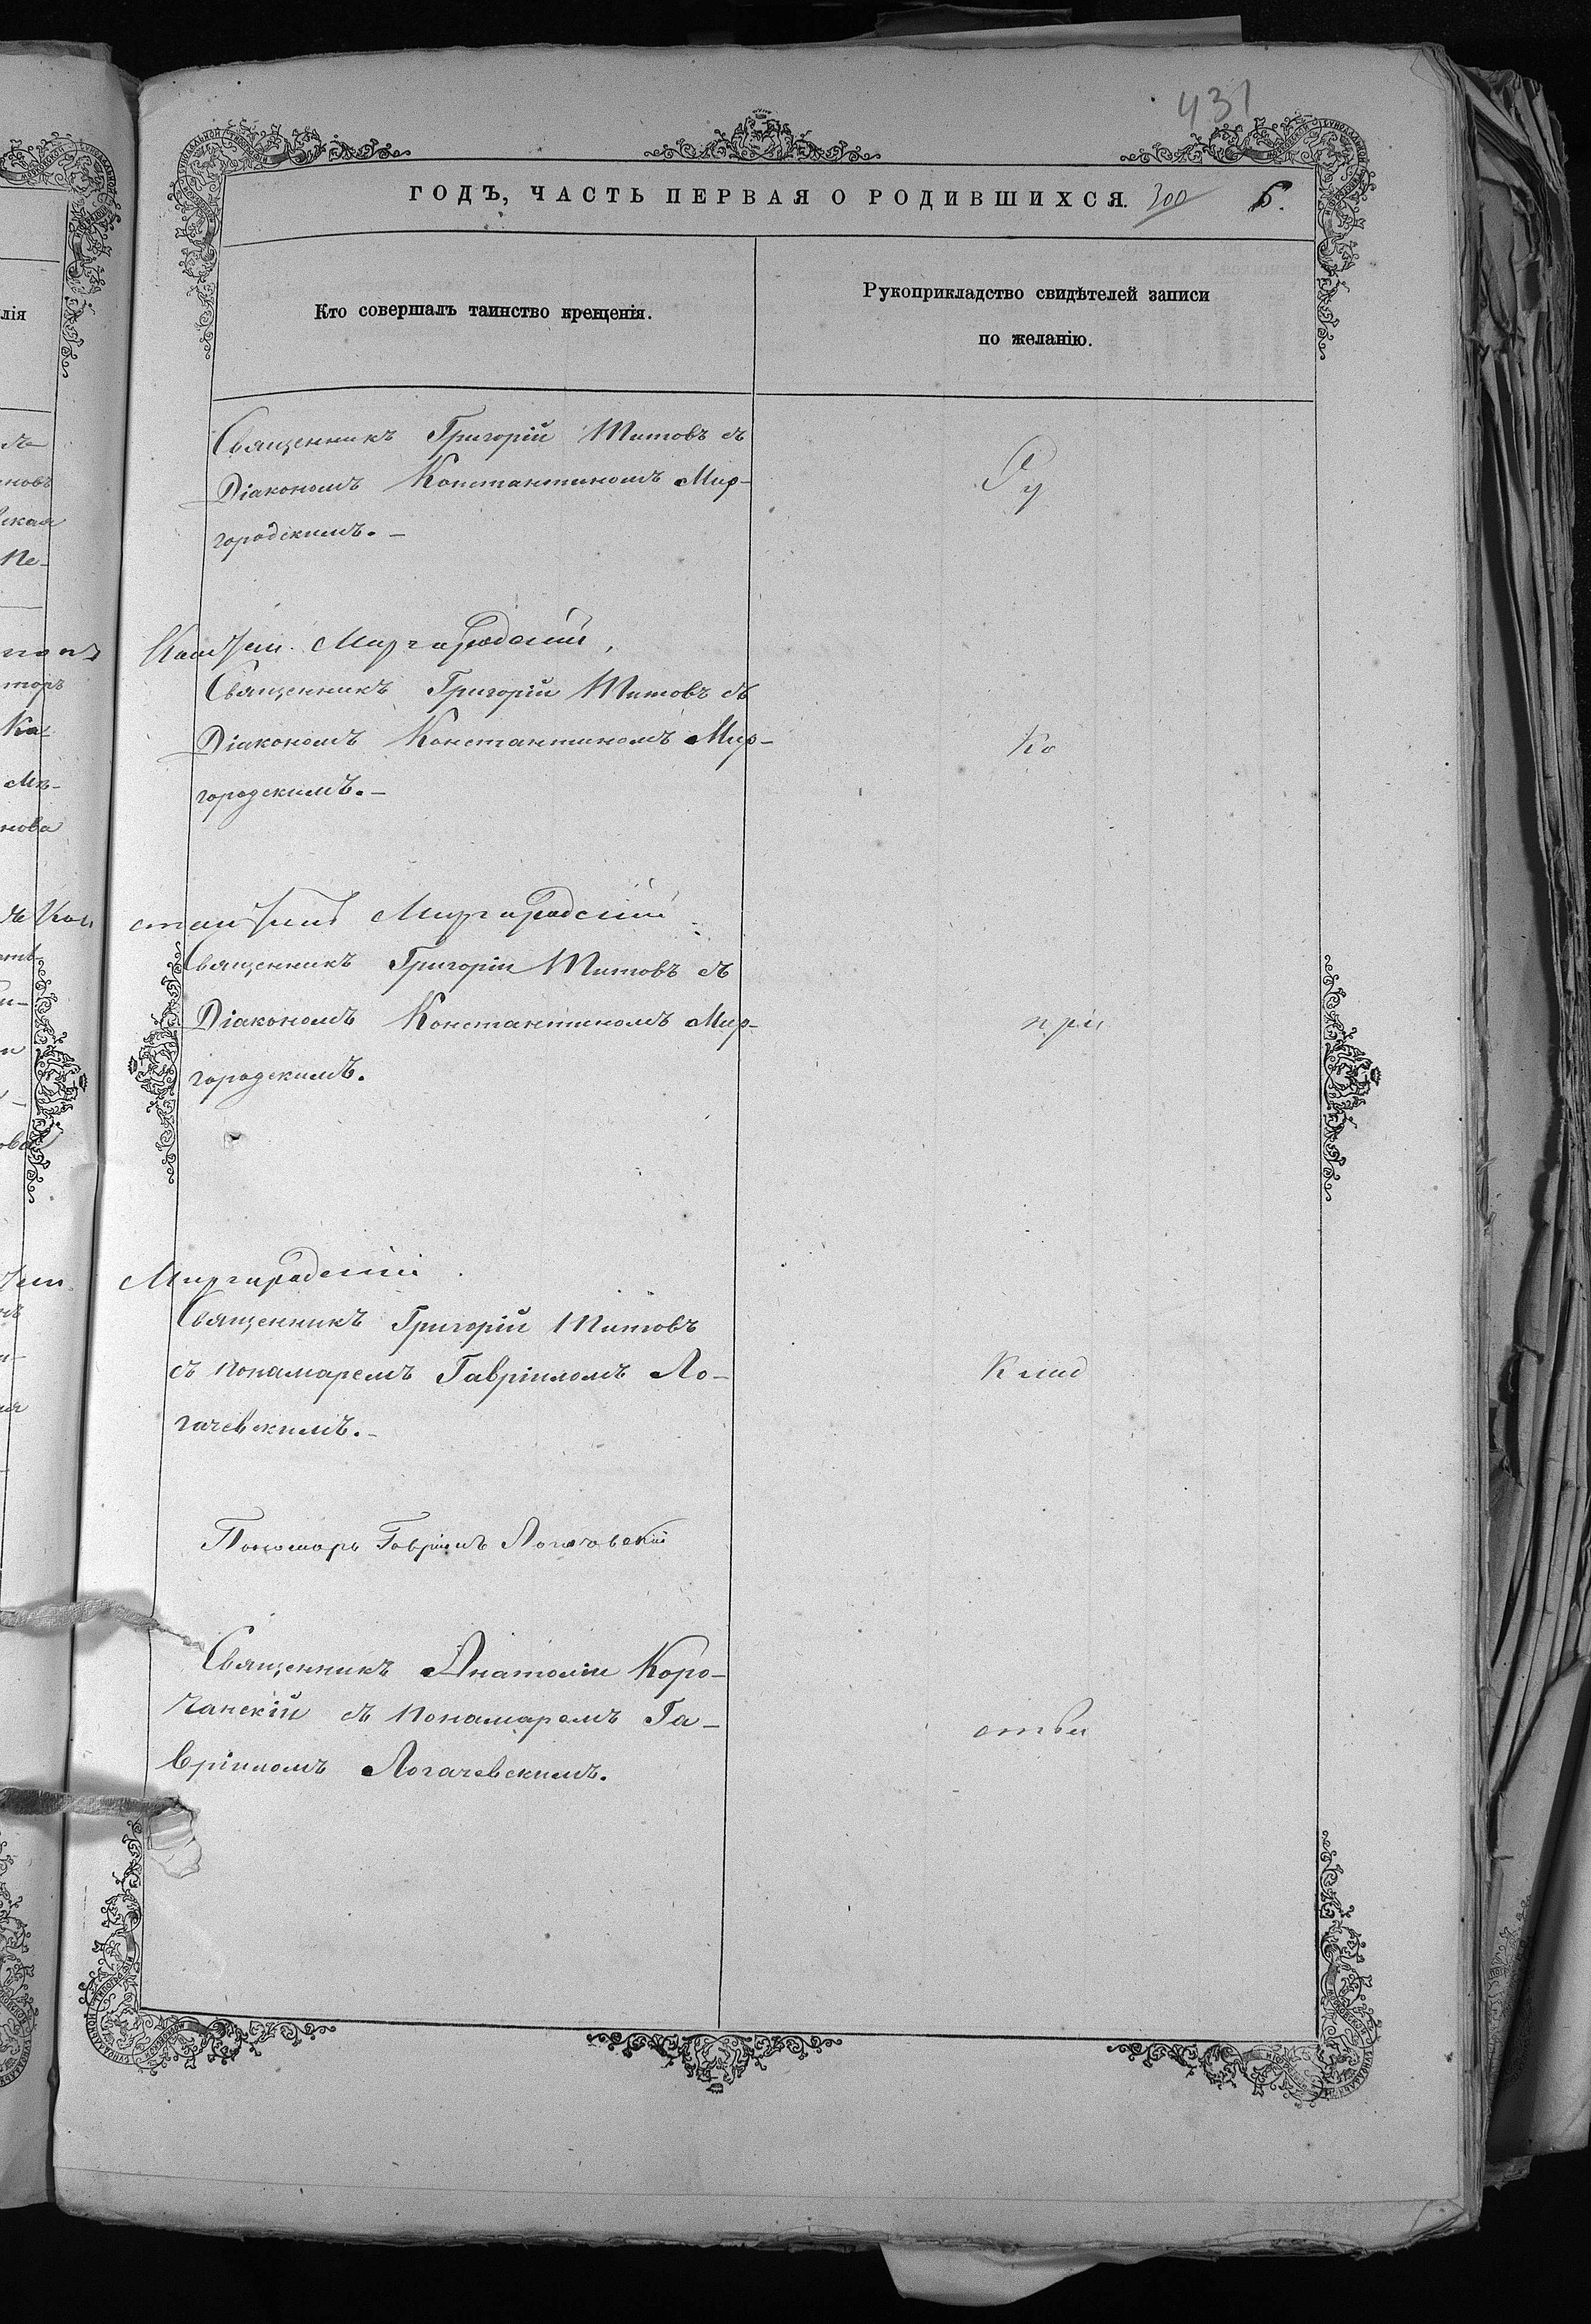 431
ГОДЪ, ЧАСТЬ ПЕРВАЯ О РОДИВШИХСЯ. 300 6.
лія
Кто совершалъ таинство крещенія.
Рукоприкладство свидѣтелей записи
по желанію.
Священникъ Григорій Титовъ съ
Діакономъ Константиномъ Мир-
городскимъ.-
Ру
новъ
ская
Пе-
Констан. Миргородскій,
Священникъ Григорій Титовъ съ
Діакономъ Константиномъ Мир-
городскимъ.-
Ко
торъ
Ка
нова
Кон
стантинъ Миргородскій
Священникъ Григорій Титовъ съ
Діакономъ Константиномъ Мир-
городскимъ.
при
Миргородскій
Священникъ Григорій Титовъ
съ Пономаремъ Гавріиломъ Ло-
гачевскимъ.-
клад
Пономарь Гавріилъ Логачовскій
Священникъ Анатолій Коро-
чанскій съ Пономаремъ Га-
вріиломъ Логачевскимъ.
ства